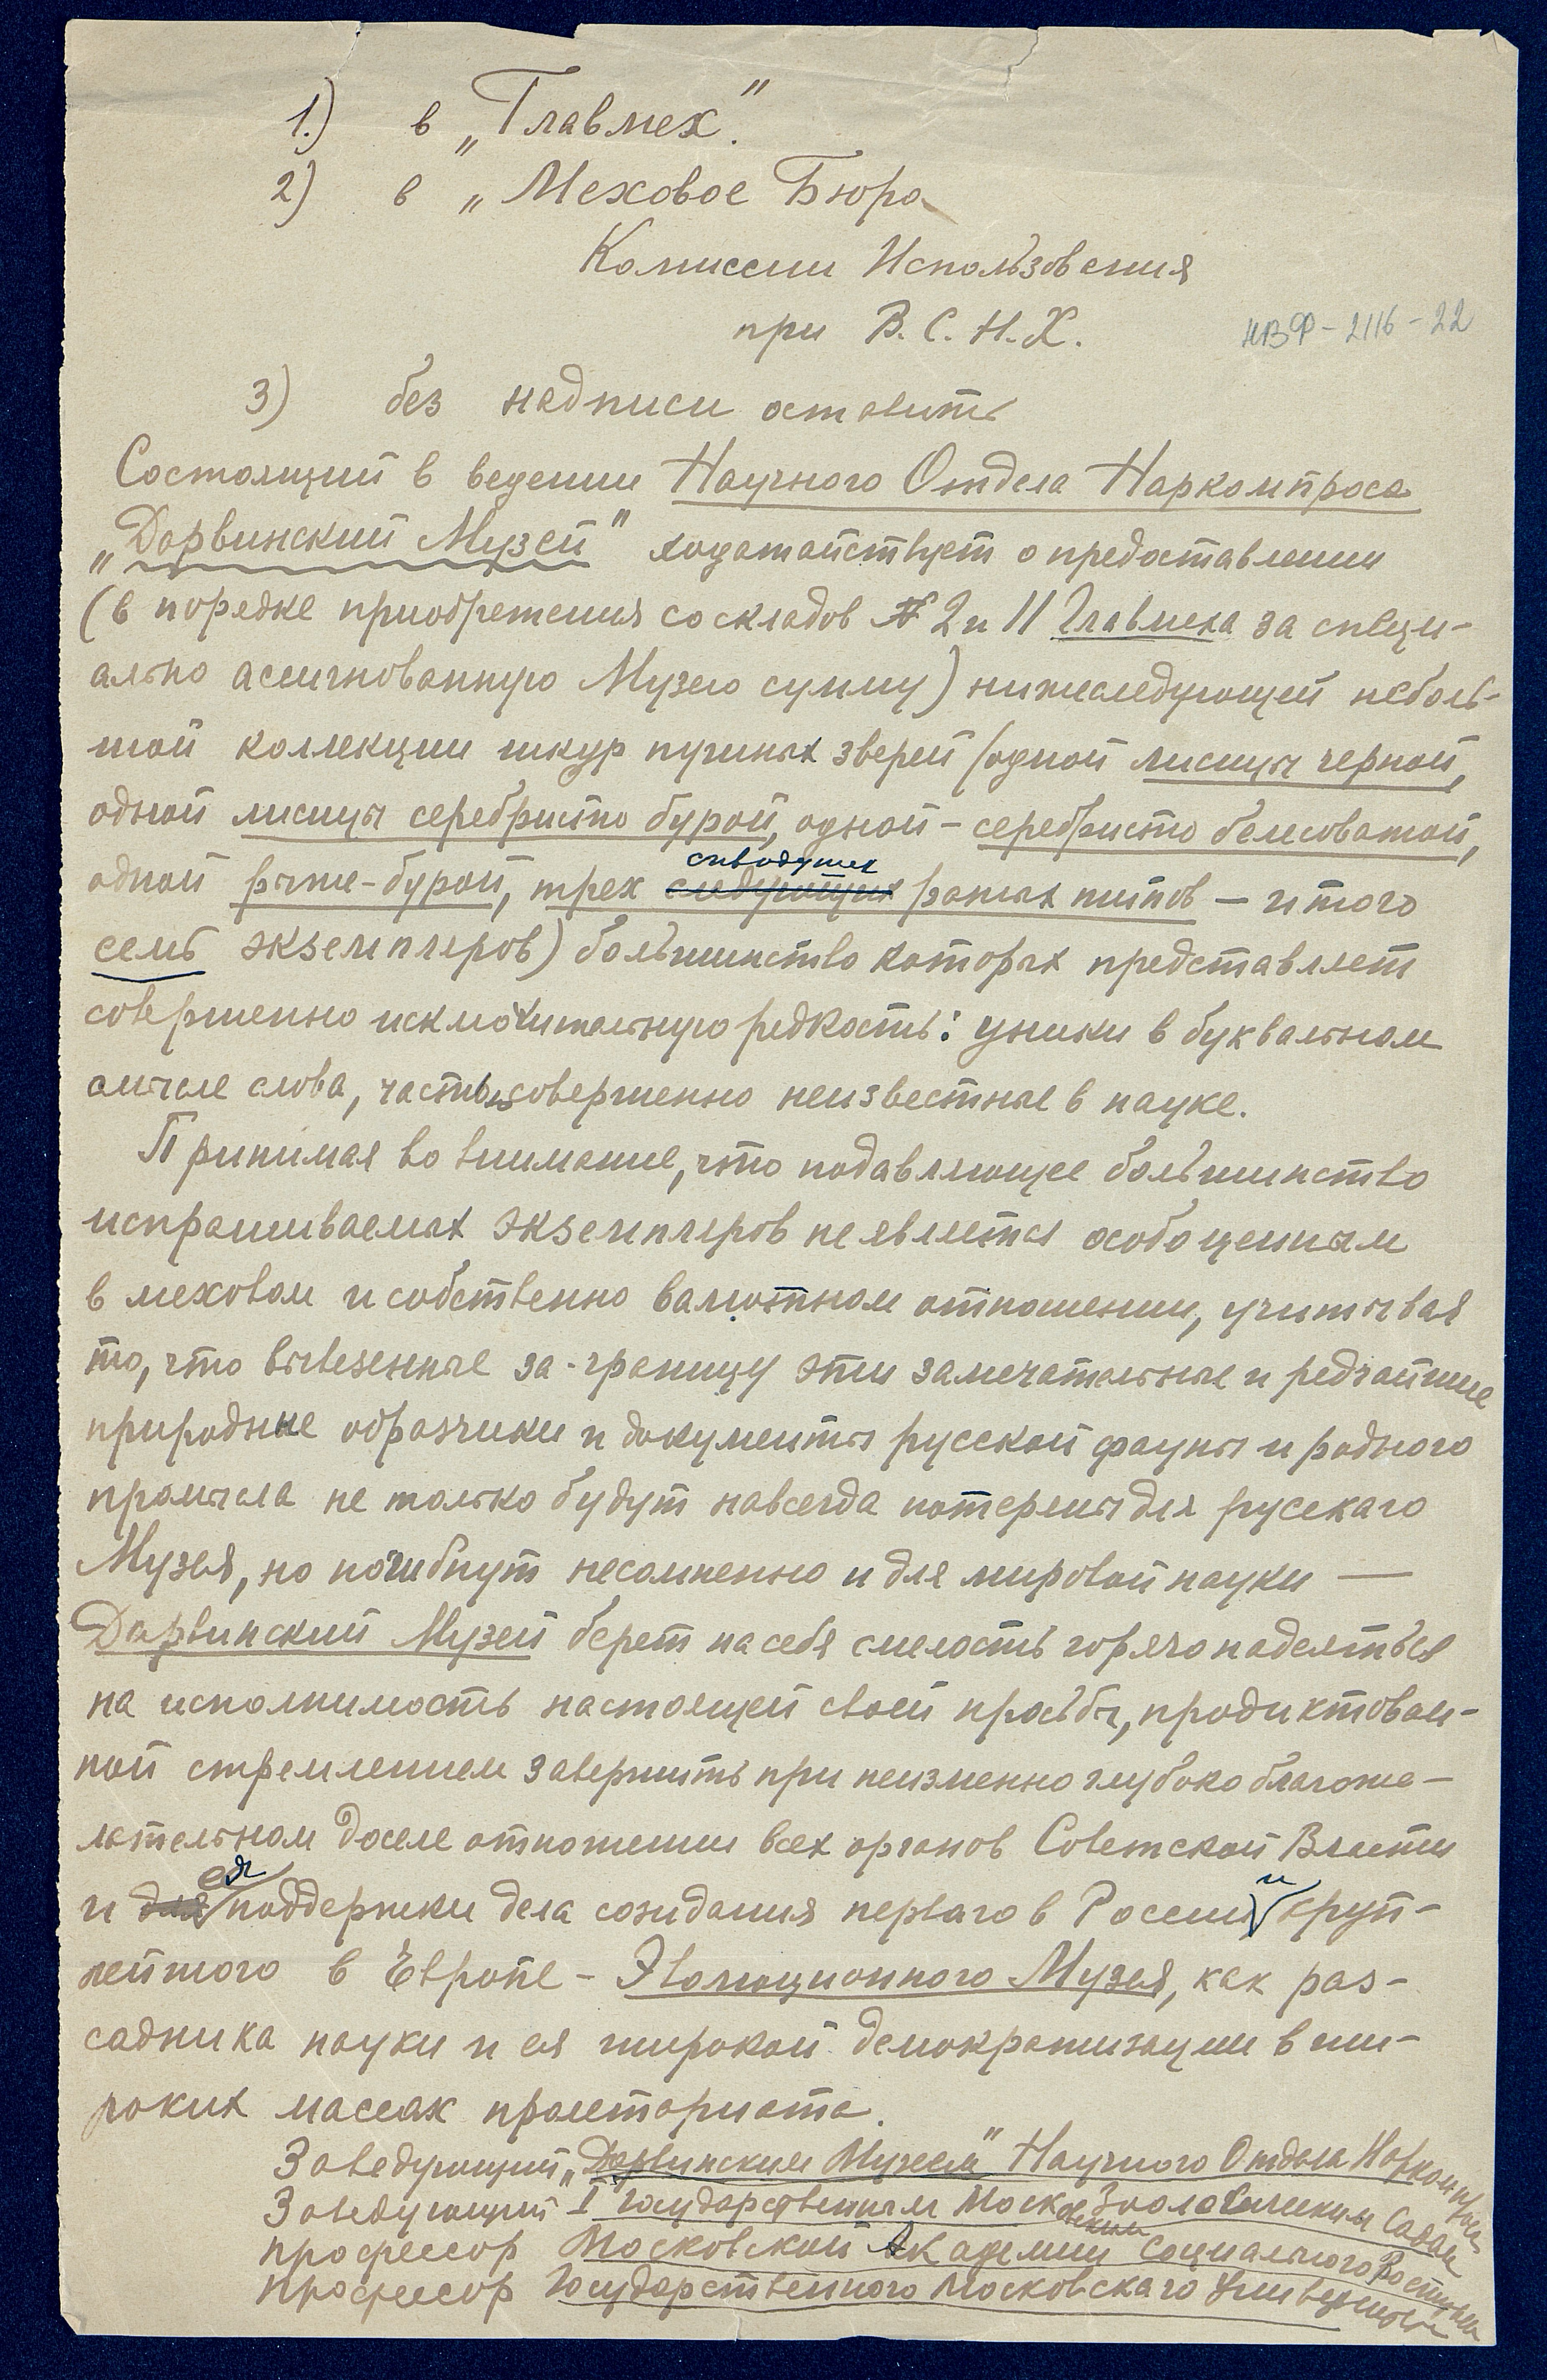 1.) в „Главмех."
2) в „Меховое Бюро
Комиссии Использования
при В.С.Н.Х.
НВФ-2116-22
3) без надписи оставить
Состоящий в ведении Научного Отдела Наркомпроса
„Дарвинский Музей" ходатайствует о предоставлении
(в порядке приобретения со складов № 2 и 11 Главмеха за специ-
ально ассигнованную Музею сумму) нижеследующей неболь-
шой коллекции шкур пушных зверей (одной лисицы черной,
одной лисицы серебристо бурой, одной – серебристо белесоватой,
сиводушек
одной рыже-бурой, трех следующих разных типов – итого
семь экземпляров) большинство которых представляет
совершенно исключительную редкость: уники в буквальном
смысле слова, частью совершенно неизвестные в науке.
Принимая во внимание, что подавляющее большинство
испрашиваемых экземпляров не является особо ценным
в меховом и собственно валютном отношении, учитывая
то, что вывезенные за-границу эти замечательные и редчайшие
природные образчики и документы русской фауны и родного
промысла не только будут навсегда потеряны для русскаго
Музея, но погибнут несомненно и для мировой науки —
Дарвинский Музей берет на себя смелость горячо надеяться
на исполнимость настоящей своей просьбы, продиктован-
ной стремлением завершить при неизменно глубоко благоже-
лательном доселе отношении всех органов Советской Власти
ея и
и для поддержки дела созидания перваго в России круп-
нейшого в Европе – Эволюционного Музея, как рас-
садника науки и ея широкой демократизации в ши-
роких массах пролетариата.
Заведующий „Дарвинским Музеем" Научного Отдела Наркомпроса
Заведующий I Государственным Московским Зоологическим Садом
профессор Московской Академии Социального Воспитания
профессор Государственного Московскаго Университета